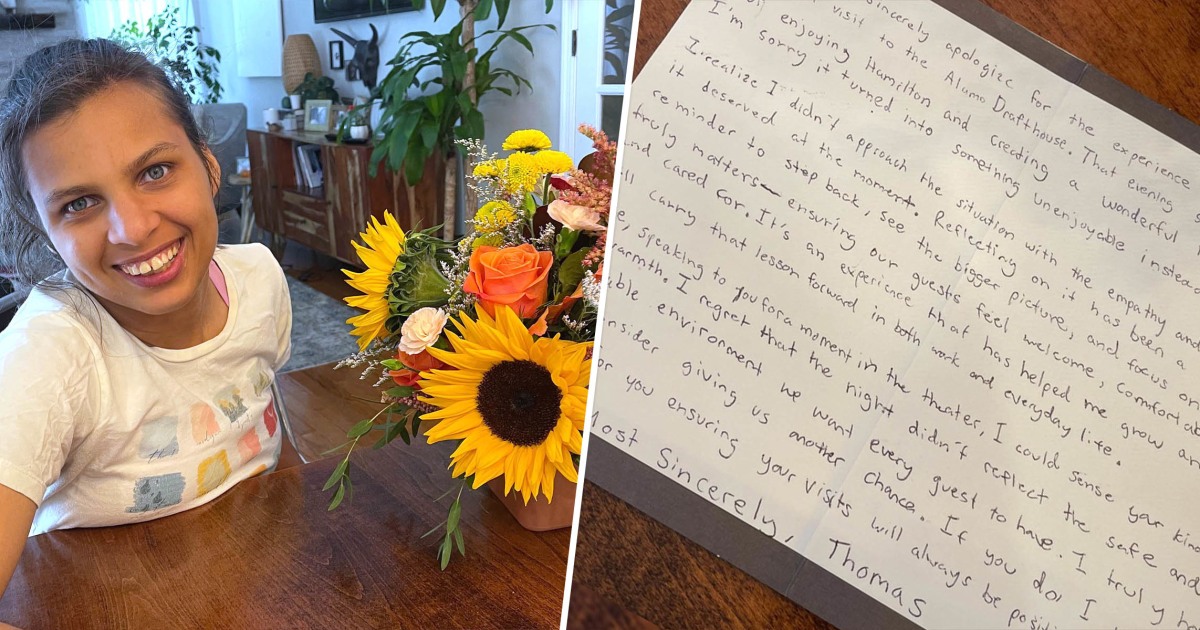 sincerely apologize for the experience
visit to the Alamo Drafthouse. That evening
enjoying Hamilton and creating a wonderful
I'm sorry it turned into something unenjoyable instead
I realize I didn't approach the situation with the empathy and
it deserved at the moment. Reflecting on it has been a
reminder to step back, see the bigger picture, and focus on
truly matters— ensuring our guests feel welcome, comfortab
and cared for. It's an experience that has helped me grow an
ll carry that lesson forward in both work and everyday life.
e, speaking to you for a moment in the theater, I could sense your kin
armth. I regret that the night didn't reflect the safe and
able environment we want every guest to have. I truly ho
nsider giving us another chance. If you do, I
or you ensuring your visits will always be positi
Most Sincerely, Thomas